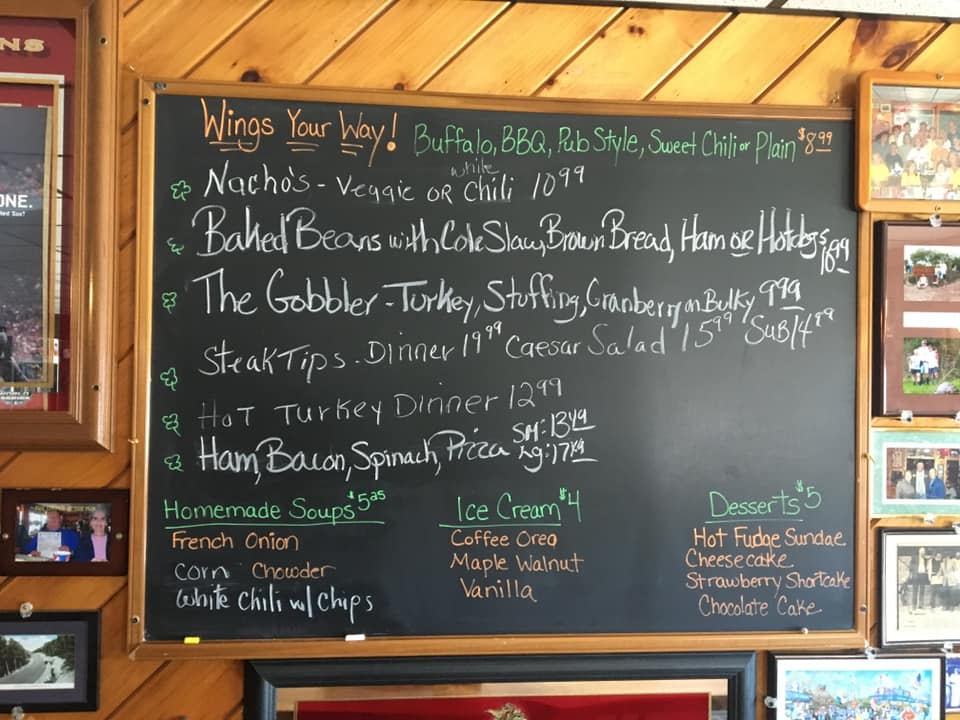 NS
ONE.
Wings Your Way! Buffalo, BBQ, Pub Style, Sweet Chili or Plain $8.99
Nacho's - Veggie OR white Chili 10.99
Baked Beans with Cole Slaw, Brown Bread, Ham OR Hotdog $10.99
The Gobbler - Turkey, Stuffing, Cranberry on Bulky 9.99
Steak Tips - Dinner 19.99 Caesar Salad 15.99 Sub 14.99
Hot Turkey Dinner 12.99
Ham, Bacon, Spinach, Pizza Sm: 13.49
Lg: 17.49
Homemade Soups $5.25
French Onion
Corn Chowder
White Chili w/ Chips
Ice Cream $4
Coffee Oreo
Maple Walnut
Vanilla
Desserts $5
Hot Fudge Sundae
Cheesecake
Strawberry Shortcake
Chocolate Cake